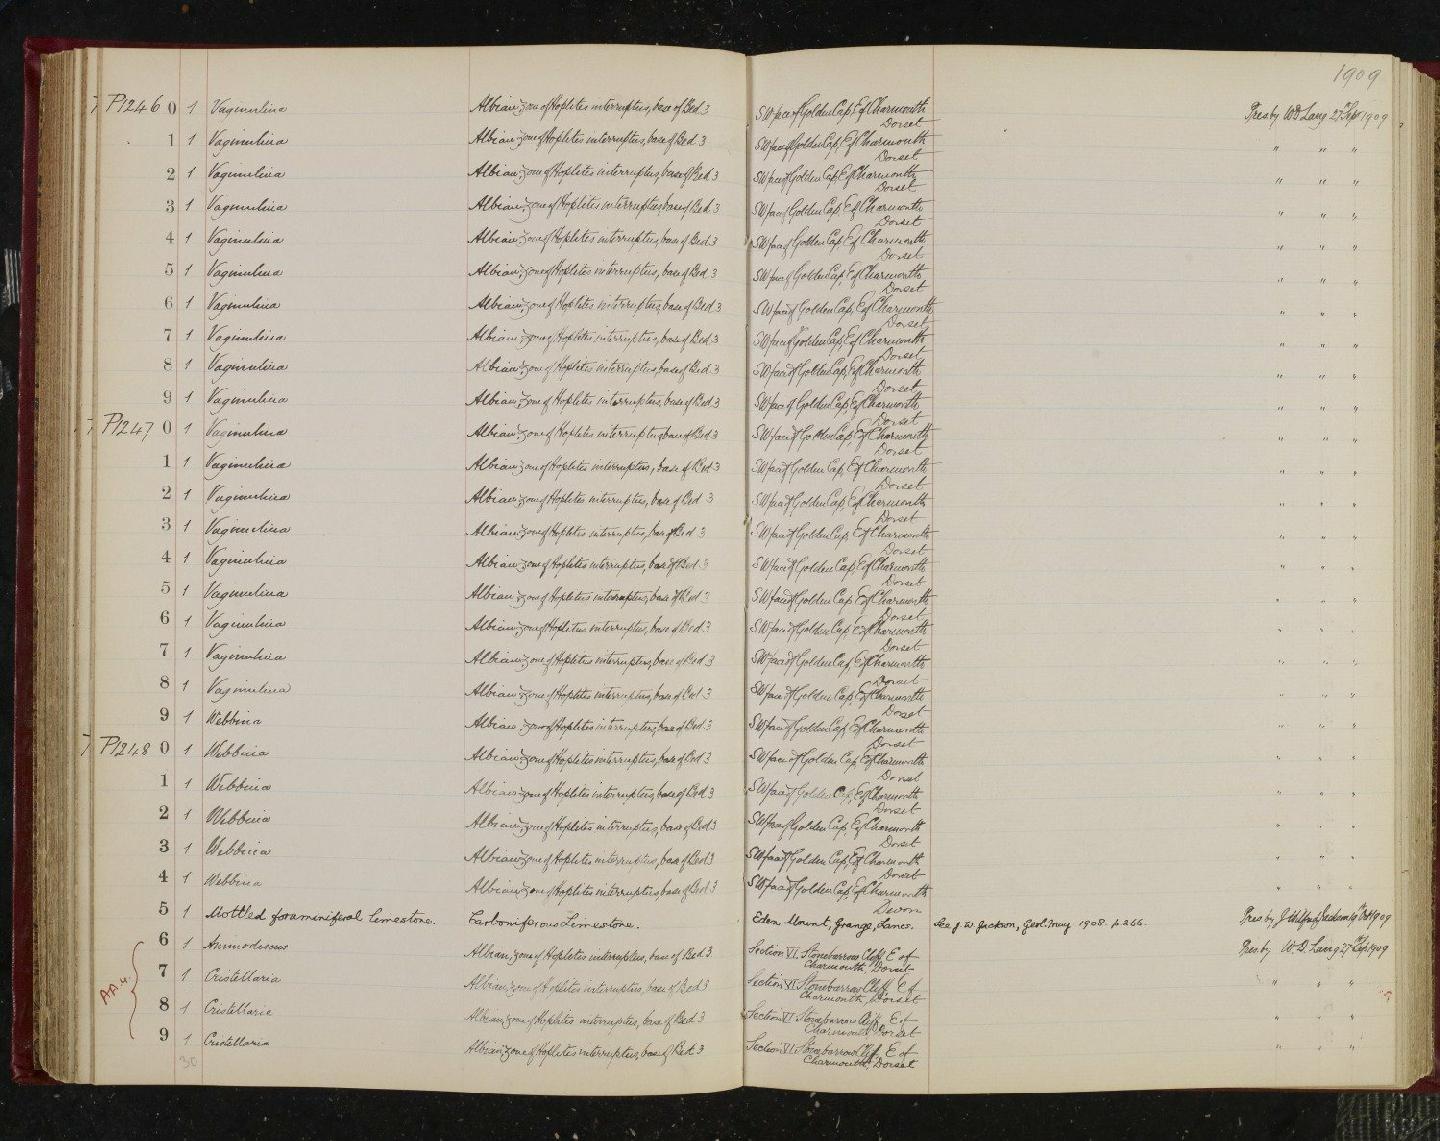 1909
P12460 1 Vaginulina Albian, zone of Hoplites interruptus, base of Bed 3 SW face of Golden Cap, E of Charmouth Pres by WD Lang 27 Sept 1909
Dorset
1 1 Vaginulina Albian, zone of Hoplites interruptus, base of Bed 3 SW face of Golden Cap, E of Charmouth " " "
Dorset
2 1 Vaginulina Albian, zone of Hoplites interruptus, base of Bed 3 SW face of Golden Cap, E of Charmouth " " "
Dorset
3 1 Vaginulina Albian, zone of Hoplites interruptus, base of Bed 3 SW face of Golden Cap, E of Charmouth " " "
Dorset
4 1 Vaginulina Albian, zone of Hoplites interruptus, base of Bed 3 SW face of Golden Cap, E of Charmouth " " "
Dorset
5 1 Vaginulina Albian, zone of Hoplites interruptus, base of Bed 3 SW face of Golden Cap, E of Charmouth " " "
Dorset
6 1 Vaginulina Albian, zone of Hoplites interruptus, base of Bed 3 SW face of Golden Cap, E of Charmouth " " "
Dorset
7 1 Vaginulina Albian, zone of Hoplites interruptus, base of Bed 3 SW face of Golden Cap, E of Charmouth " " "
Dorset
8 1 Vaginulina Albian, zone of Hoplites interruptus, base of Bed 3 SW face of Golden Cap, E of Charmouth " " "
Dorset
9 1 Vaginulina Albian, zone of Hoplites interruptus, base of Bed 3 SW face of Golden Cap, E of Charmouth " " "
Dorset
P12470 1 Vaginulina Albian, zone of Hoplites interruptus, base of Bed 3 SW face of Golden Cap, E of Charmouth " " "
Dorset
1 1 Vaginulina Albian, zone of Hoplites interruptus, base of Bed 3 SW face of Golden Cap, E of Charmouth " " "
Dorset
2 1 Vaginulina Albian, zone of Hoplites interruptus, base of Bed 3 SW face of Golden Cap, E of Charmouth " " "
Dorset
3 1 Vaginulina Albian, zone of Hoplites interruptus, base of Bed 3 SW face of Golden Cap, E of Charmouth " " "
Dorset
4 1 Vaginulina Albian, zone of Hoplites interruptus, base of Bed 3 SW face of Golden Cap, E of Charmouth " " "
Dorset
5 1 Vaginulina Albian, zone of Hoplites interruptus, base of Bed 3 SW face of Golden Cap, E of Charmouth " " "
Dorset
6 1 Vaginulina Albian, zone of Hoplites interruptus, base of Bed 3 SW face of Golden Cap, E of Charmouth " " "
Dorset
7 1 Vaginulina Albian, zone of Hoplites interruptus, base of Bed 3 SW face of Golden Cap, E of Charmouth " " "
Dorset
8 1 Vaginulina Albian, zone of Hoplites interruptus, base of Bed 3 SW face of Golden Cap, E of Charmouth " " "
Dorset
9 1 Webbina Albian, zone of Hoplites interruptus, base of Bed 3 SW face of Golden Cap, E of Charmouth " " "
Dorset
P12480 1 Webbina Albian, zone of Hoplites interruptus, base of Bed 3 SW face of Golden Cap, E of Charmouth " " "
Dorset
1 1 Webbina Albian, zone of Hoplites interruptus, base of Bed 3 SW face of Golden Cap, E of Charmouth " " "
Dorset
2 1 Webbina Albian, zone of Hoplites interruptus, base of Bed 3 SW face of Golden Cap, E of Charmouth " " "
Dorset
3 1 Webbina Albian, zone of Hoplites interruptus, base of Bed 3 SW face of Golden Cap, E of Charmouth " " "
Dorset
4 1 Webbina Albian, zone of Hoplites interruptus, base of Bed 3 SW face of Golden Cap, E of Charmouth " " "
Devon
5 1 Mottled foraminiferal limestone. Carboniferous Limestone. Eden Mount, Grange, Lancs. See J. W. Jackson, Geol. Mag 1908. p 266. Pres by J Wilfrid Jackson 19 Oct 1909
6 1 Ammodiscus Albian, zone of Hoplites interruptus, base of Bed 3 Section VI. Stonebarrow Cliff E of Pres. by W. D. Lang 27 Sep 1909
Charmouth, Dorset
AA.4.
7 1 Cristellaria Albian, zone of Hoplites interruptus, base of Bed 3 Section VI. Stonebarrow Cliff E of " " "
Charmouth, Dorset
8 1 Cristellaria Albian, zone of Hoplites interruptus, base of Bed 3 Section VI Stonebarrow Cliff, E of " " "
Charmouth, Dorset
9 1 Cristellaria Albian, zone of Hoplites interruptus, base of Bed 3 Section VI. Stonebarrow Cliff, E of " " "
Charmouth, Dorset
30